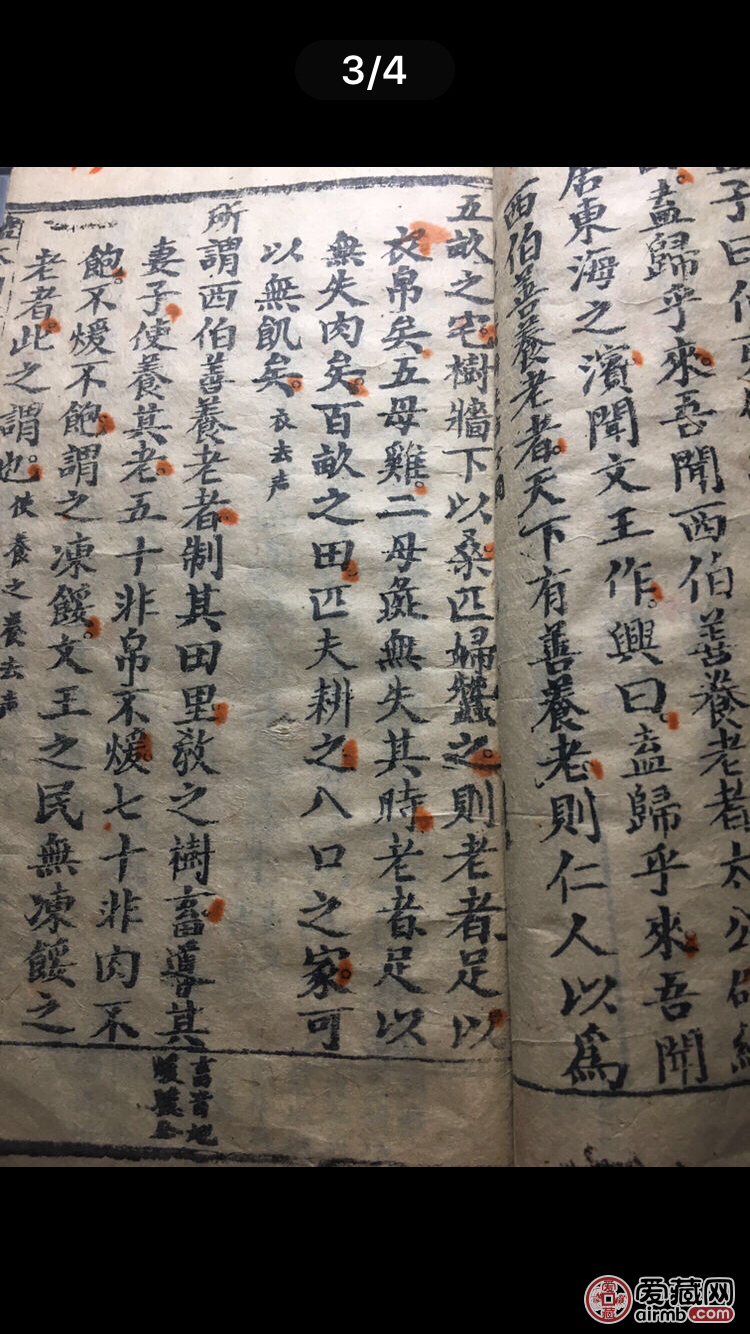 3/4
子曰
盍歸乎來吾聞西伯善養老者太公
居東海之濱聞文王作興曰盍歸乎來吾聞
西伯善養老者天下有善養老則仁人以爲
五畝之宅樹牆下以桑匹婦蠶之則老者足以
衣帛矣五母雞二母彘無失其時老者足以
無失肉矣百畝之田匹夫耕之八口之家可
以無飢矣 衣去声
所謂西伯善養老者制其田里教之樹畜導其
妻子使養其老五十非帛不煖七十非肉不
飽不煖不飽謂之凍餒文王之民無凍餒之
老者此之謂也 使養之養去声
爱藏网
airmb.com